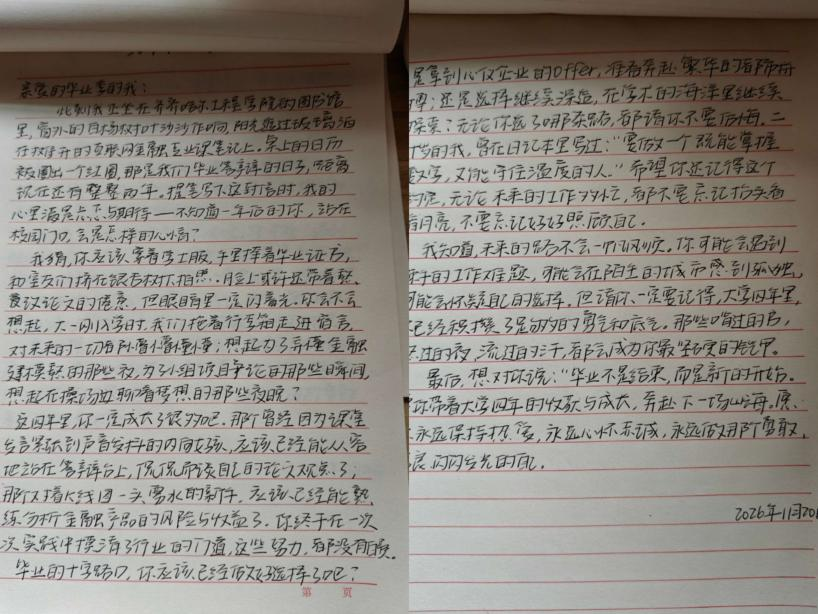 亲爱的毕业季的我：
此刻我正坐在齐齐哈尔工程学院的图书馆
里，窗外的白杨树叶沙沙作响，阳光透过玻璃洒
在摊开的互联网金融专业课笔记上。桌上的日历
被圈出一个红圈，那是我们毕业答辩的日子，距离
现在还有整整两年。提笔写下这封信时，我的
心里满是忐忑与期待——不知道一年后的你，站在
校园门口，会是怎样的心情？
我猜，你应该穿着学士服，手里捧着毕业证书，
和室友们挤在银杏树下拍照。脸上或许还带着熬
夜改论文的倦意，但眼睛里一定闪着光。你会不会
想起，大一刚入学时，我们拖着行李箱走进宿舍，
对未来的一切都懵懵懂懂；想起为了弄懂金融
建模熬的那些夜，为了小组项目争论的那些瞬间，
想起在操场边聊着梦想的那些夜晚？
这四年里，你一定成长了很多吧。那个曾经因为课堂
发言紧张到声音发抖的内向女孩，应该已经能从容
地站在答辩台上，侃侃而谈自己的论文观点了；
那个对着K线图一头雾水的新手，应该已经能熟
练分析金融产品的风险与收益了。你终于在一次
次实践中摸清了行业的门道，这些努力，都没有白费。
毕业的十字路口，你应该已经做好选择了吧？
第 页
是拿到心仪企业的offer，准备奔赴繁华的都市
；还是选择继续深造，在学术的海洋里继续
探索？无论你选了哪条路，都请你不要后悔。二
岁的我，曾在日记本里写过：“要做一个既能掌握
数字，又能守住温度的人。”希望你还记得这个
约定，无论未来的工作多忙，都不要忘记抬头看
看月亮，不要忘记好好照顾自己。
我知道，未来的路不会一帆风顺。你可能会遇到
棘手的工作难题，可能会在陌生的城市感到孤独，
可能会怀疑自己的选择。但请你一定要记得，大学四年里，
已经积攒了足够的勇气和底气。那些啃过的书，
熬过的夜，流过的汗，都会成为你最坚硬的铠甲。
最后，想对你说：“毕业不是结束，而是新的开始。
你带着大学四年的收获与成长，奔赴下一场山海。愿
永远保持热爱，永远心怀赤诚，永远做那个勇敢，
闪闪发光的自己。
2026年11月20